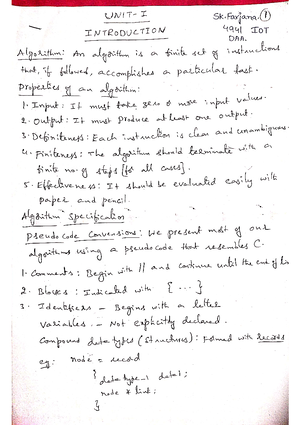 UNIT-I
INTRODUCTION
Sk.Farjana. 1
4941 IOT
DAA.
Algorithm: An algorithm is a finite set of instructions
that, if followed, accomplishes a particular task.
Properties of an algorithm:
1. Input: It must take zero or more input values.
2. Output: It must produce at least one output.
3. Definiteness: Each instruction is clear and unambiguous.
4. Finiteness: The algorithm should terminate with a
finite no. of steps [for all cases].
5. Effectiveness: It should be evaluated easily with
paper and pencil.
Algorithm Specification
pseudocode Convensions: we present most of our
algorithms using a pseudocode that resembles C.
1. Comments: Begin with // and continue until the end of lin
2. Blocks: Indicated with { --- }
3. Identifiers - Begins with a letter
Variables - Not explicitly declared.
Compound data types (structures): Formed with records
eg: node = record
{ data type_1 data1;
node * link;
}